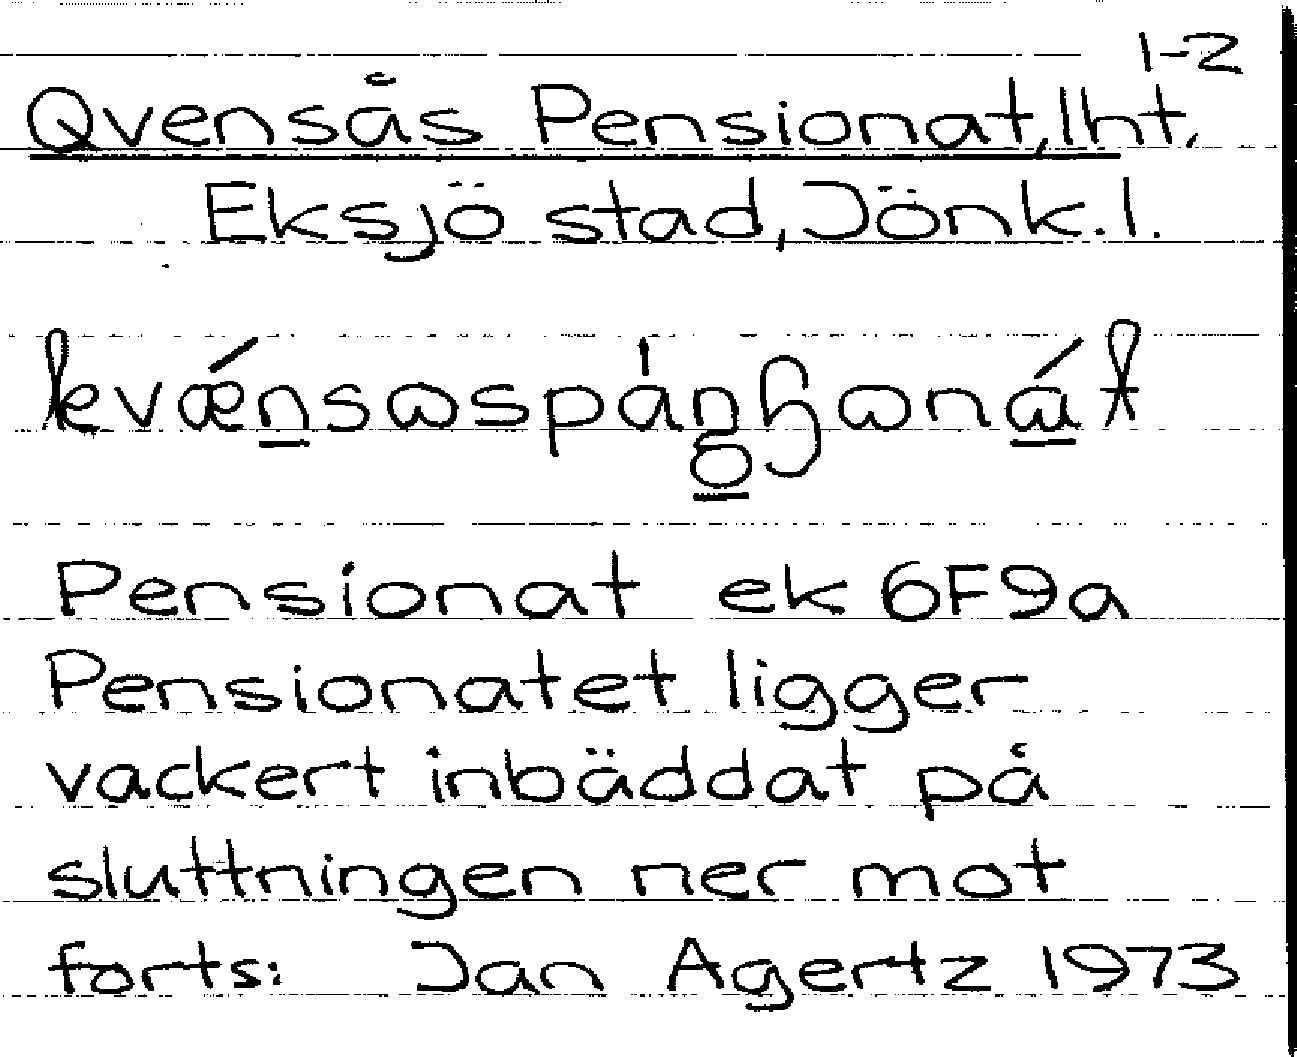 1-2
Qvensås Pensionat, lht.
Eksjö stad, Jönk. l.
Pensionat ek 6F9a
Pensionatet ligger
vackert inbäddat på
sluttningen ner mot
forts: Jan Agertz 1973